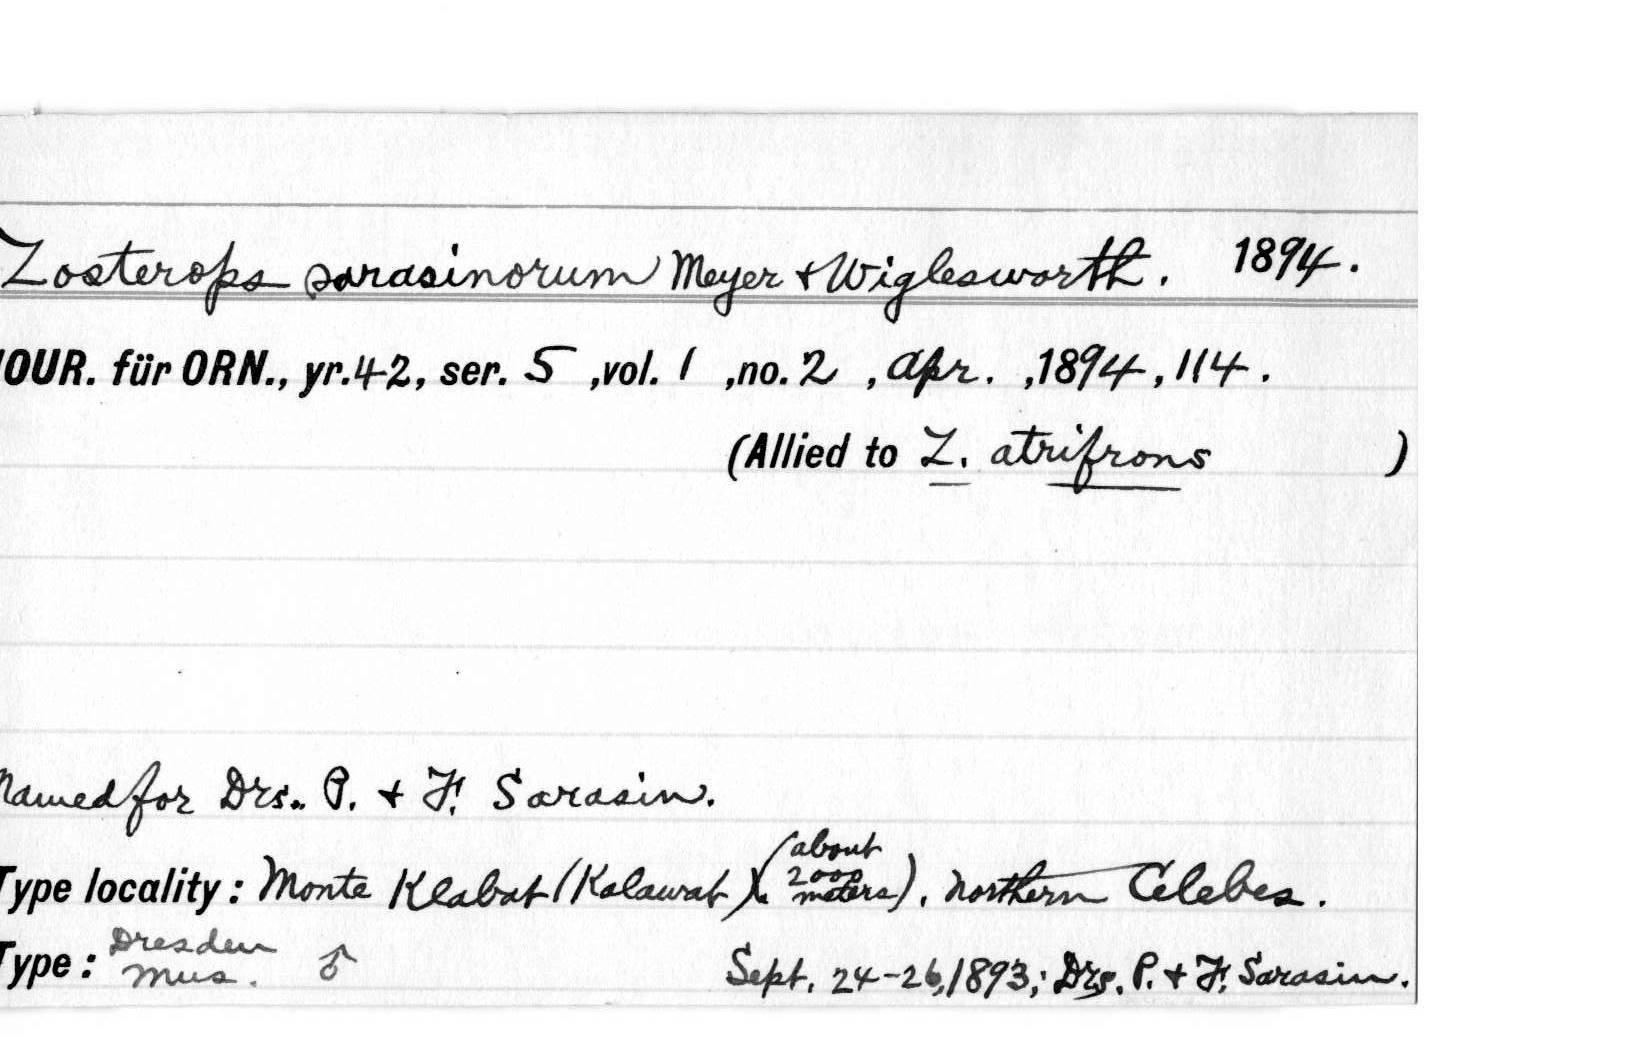 Zosterops sarasinorum Meyer + Wiglesworth. 1894.
JOUR. für ORN., yr.42, ser. 5 ,vol. 1 ,no. 2 , Apr. ,1894, 114.
(Allied to Z. atrifrons )
Named for Drs. P. + F. Sarasin.
Type locality: Monte Klabat (Kalawat) (about 2000 meters), northern Celebes.
Type: Dresden Mus. ♂ Sept. 24-26, 1893; Drs. P. + F. Sarasin.